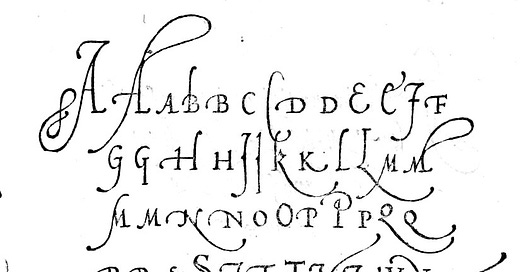 A A A B B C C D D E E F F
G G H H I I K K L L M M
M M N N O O P P P Q Q